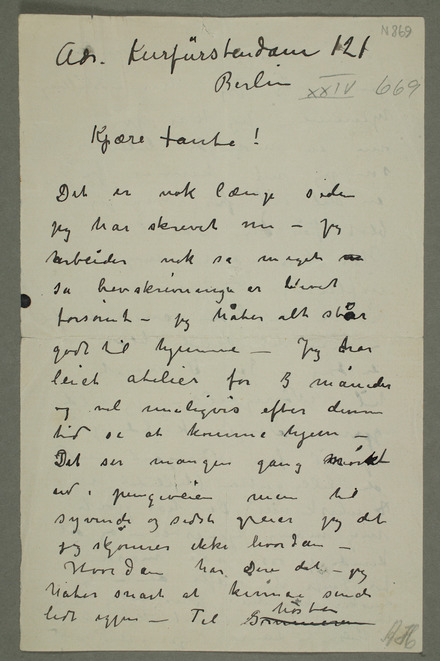 N 869
Adr. Kurfürstendam 121
Berlin
XXIV 669
Kjære tante!
Det er nok længe siden
jeg har skrevet nu – Jeg
arbeider nok så meget
så brevskrivninga er blevet
forsømt – jeg håber alt står
godt til hjemme – Jeg har
leiet atelier for 3 måneder
og vil muligvis efter denne
tid se at komme hjem –
Det ser mangen gang mørkt
ud i pengeveien men til
syvende og sidst greier jeg det
jeg skjønner ikke hvordan –
Hvordan har Dere det – jeg
håber snart at kunne sende
lidt igjen – Til høsten